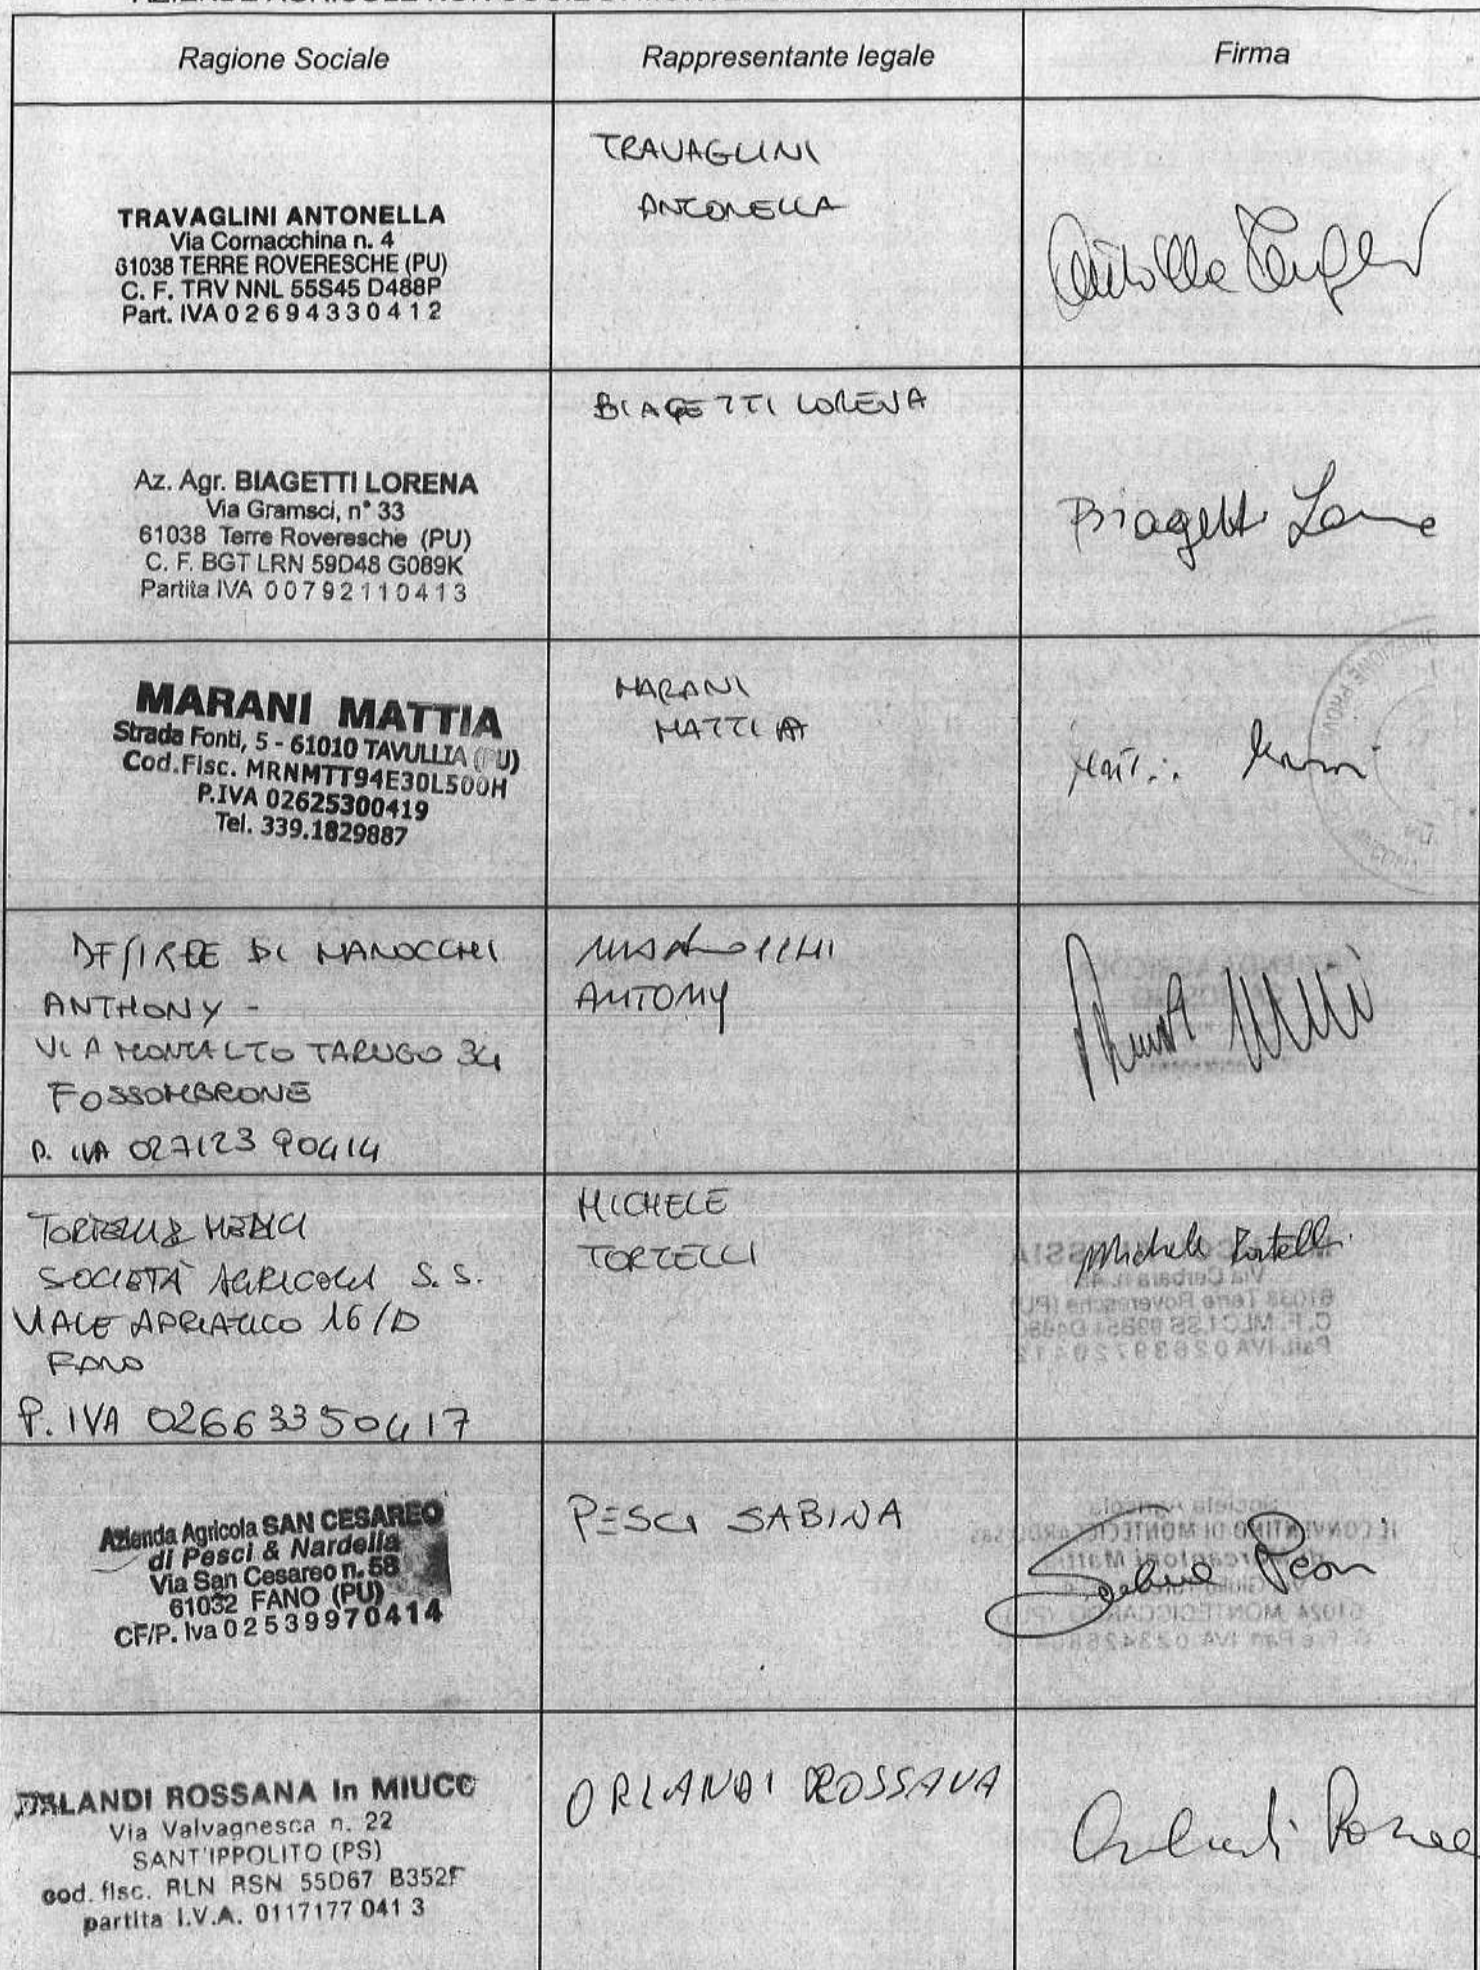 Ragione Sociale
Rappresentante legale
Firma
TRAVAGLINI ANTONELLA
Via Cornacchina n. 4
61038 TERRE ROVERESCHE (PU)
C. F. TRV NNL 55S45 D488P
Part. IVA 02694330412
TRAVAGLINI
ANTONELLA
Az. Agr. BIAGETTI LORENA
Via Gramsci, n° 33
61038 Terre Roveresche (PU)
C. F. BGT LRN 59D48 G089K
Partita IVA 00792110413
BIAGETTI LORENA
Biagetti
MARANI MATTIA
Strada Fonti, 5 - 61010 TAVULLIA (PU)
Cod.Fisc. MRNMTT94E30L500H
P.IVA 02625300419
Tel. 339.1829887
MARANI
MATTIA
DESIREE DI MANOCCHI
ANTHONY -
VIA MONTALTO TARUGO 34
FOSSOMBRONE
P. IVA 02712390414
ANTONY
TORTELLI & MEDICI
SOCIETÀ AGRICOLA S. S.
VIALE ADRIATICO 16/D
FANO
P. IVA 02663350417
MICHELE
TORTELLI
Michele Tortelli
Azienda Agricola SAN CESAREO
di Pesci & Nardella
Via San Cesareo n. 58
61032 FANO (PU)
CF/P. Iva 02539970414
PESCI SABINA
ORLANDI ROSSANA In MIUCC
Via Valvagnesca n. 22
SANT'IPPOLITO (PS)
cod. fisc. RLN RSN 55D67 B352F
partita I.V.A. 0117177 041 3
ORLANDI ROSSANA
Orlandi